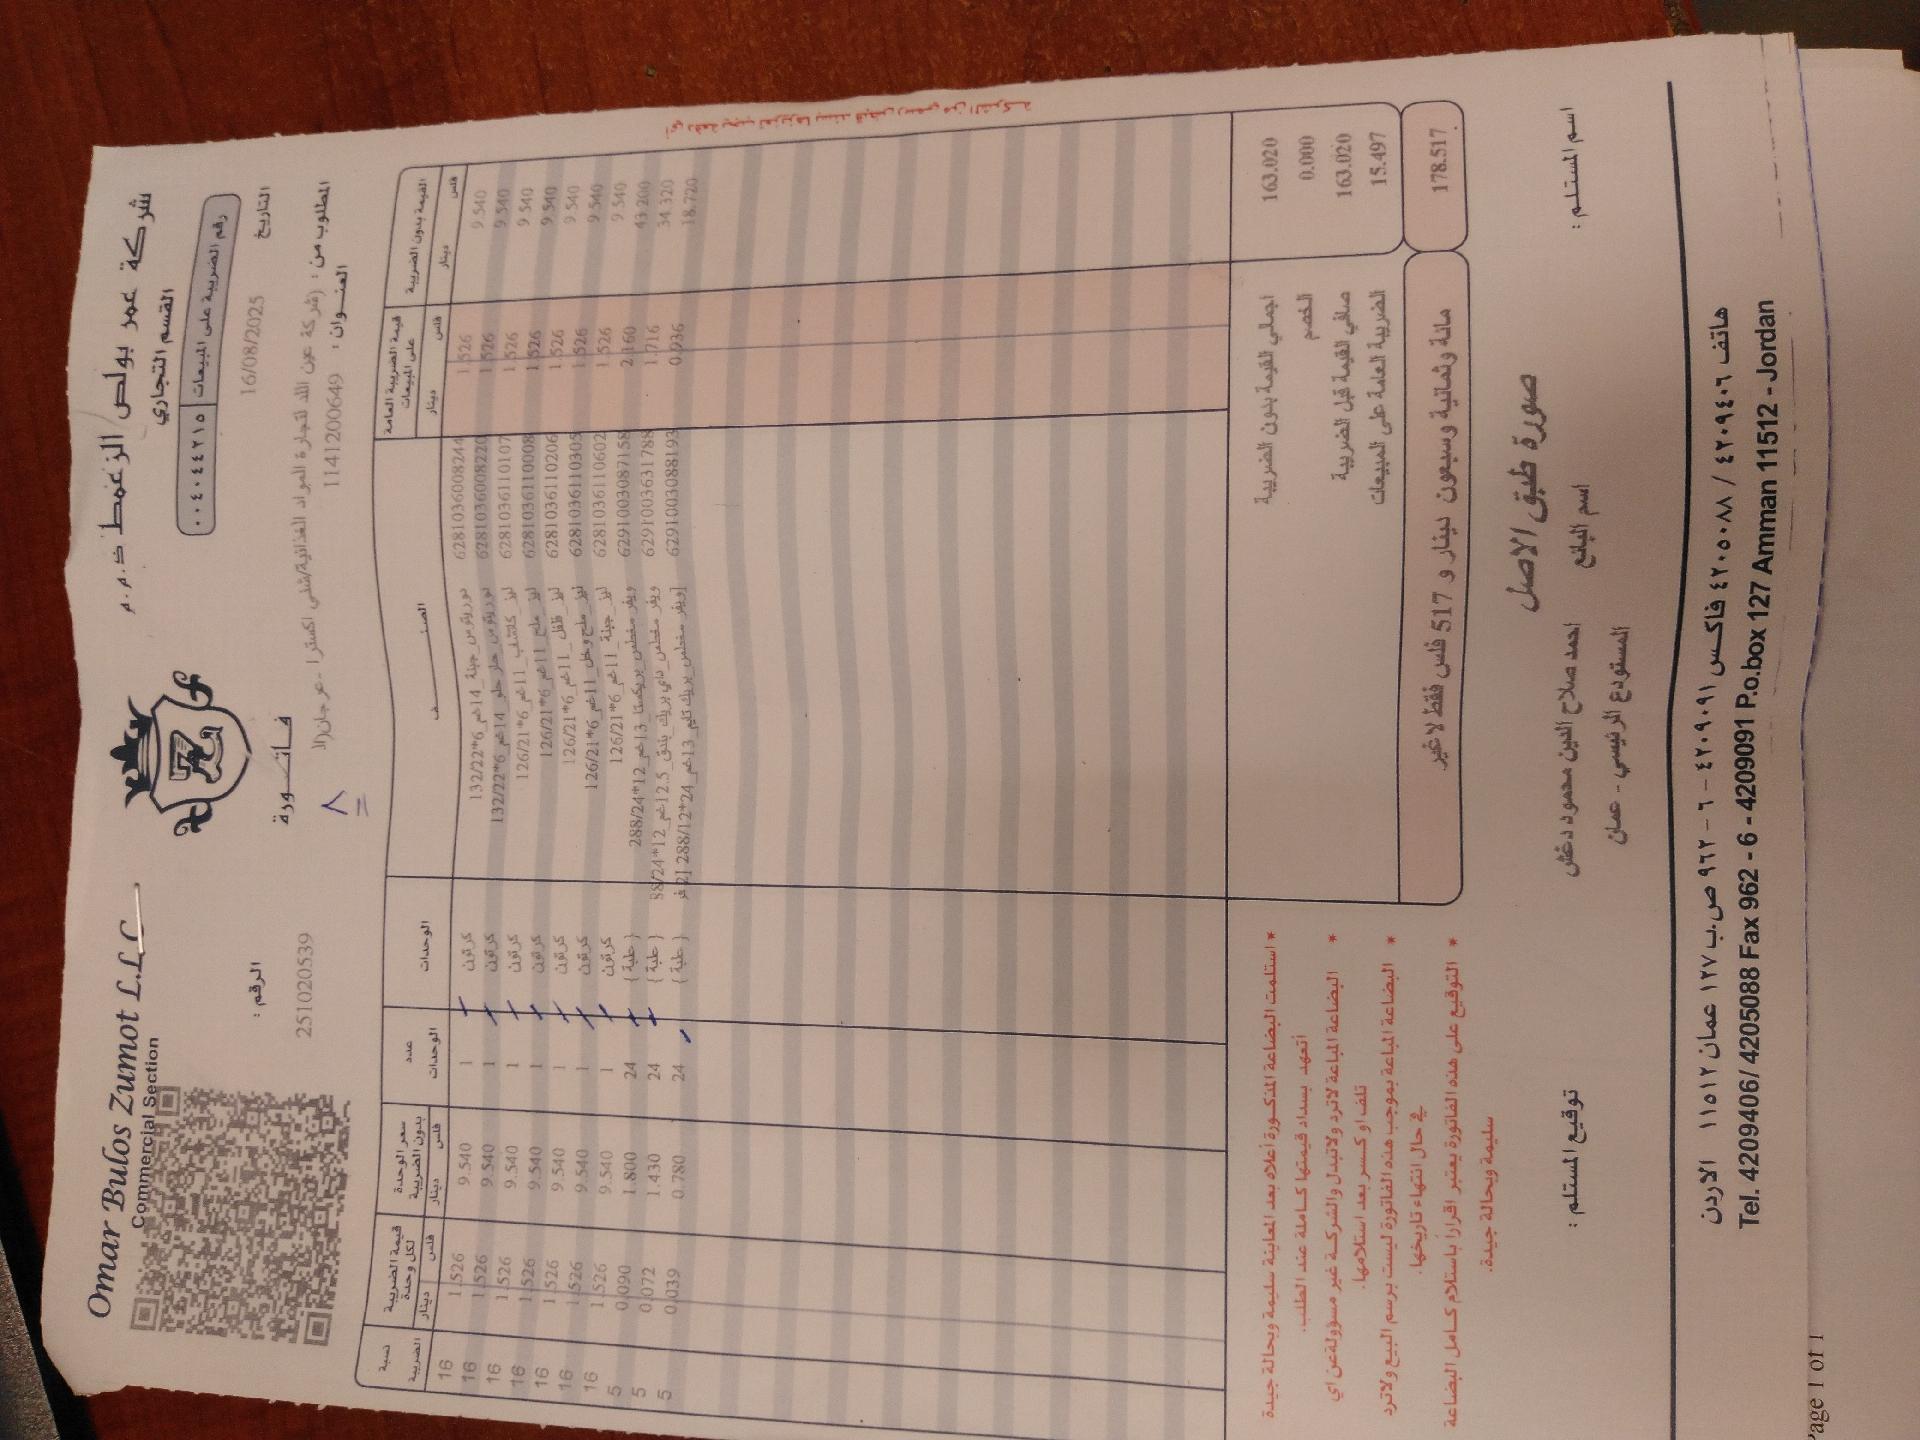 Omar Bulos Zumot L.L.C
Commercial Section
شركة عمر بولص الزعمط ذ.م.م
القسم التجاري
رقم الضريبة على المبيعات ٠٠٤٠٤٤٢١٥
فاتورة
التاريخ
16/08/2025
الرقم :
251020539
المطلوب من : (شركة عون الله لتجارة المواد الغذائية
العنوان : 11141200649
٨
القيمة بدون الضريبة
قيمة الضريبة العامة على المبيعات
الصنف
الوحدات
عدد الوحدات
سعر الوحدة بدون الضريبة
قيمة الضريبة لكل وحدة
نسبة الضريبة
فلس دينار فلس دينار فلس دينار فلس دينار
9.540 1.526 6281036008244 دوريتوس_جبنة_14غم_6*132/22 كرتون 1 9.540 1.526 16
9.540 1.526 6281036008220 دوريتوس_حار حلو_14غم_6*132/22 كرتون 1 9.540 1.526 16
9.540 1.526 6281036110107 ليز_كاتشب_11غم_6*126/21 كرتون 1 9.540 1.526 16
9.540 1.526 6281036110008 ليز_ملح_11غم_6*126/21 كرتون 1 9.540 1.526 16
9.540 1.526 6281036110206 ليز_فلفل_11غم_6*126/21 كرتون 1 9.540 1.526 16
9.540 1.526 6281036110305 ليز_ملح وخل_11غم_6*126/21 كرتون 1 9.540 1.526 16
9.540 1.526 6281036110602 ليز_جبنة_11غم_6*126/21 كرتون 1 9.540 1.526 16
43.200 2.160 6291003087158 ويفر مغطس_بريكستا_13غم_12*288/24 { علبة } 24 1.800 0.090 5
34.320 1.716 6291003631788 ويفر مغطس_داي بريك_بندق_12.5غم_12*88/24 { علبة } 24 1.430 0.072 5
18.720 0.936 6291003088193 ويفر مغطس_بريك تايم_13غم_24*288/12 { علبة } 24 0.780 0.039 5
اجمالي القيمة بدون الضريبة 163.020
الخصم 0.000
صافي القيمة قبل الضريبة 163.020
الضريبة العامة على المبيعات 15.497
مائة وثمانية وسبعون دينار و 517 فلس فقط لا غير. 178.517
* استلمت البضاعة المذكورة أعلاه بعد المعاينة سليمة وبحالة جيدة
أتعهد بسداد قيمتها كاملة عند الطلب.
* البضاعة المباعة لاترد ولاتبدل والشركة غير مسؤولة عن اي
تلف او كسر بعد استلامها.
* البضاعة المباعة بموجب هذه الفاتورة ليست برسم البيع ولاترد
في حال انتهاء تاريخها.
* التوقيع على هذه الفاتورة يعتبر اقراراً باستلام كامل البضاعة
سليمة وبحالة جيدة.
صورة طبق الاصل
اسم المستلم :
اسم البائع
احمد صلاح الدين محمود دغش
المستودع الرئيسي - عمان
توقيع المستلم :
هاتف ٤٢٠٩٤٠٦ / ٤٢٠٥٠٨٨ فاكس ٤٢٠٩٠٩١ - ٦ - ٩٦٢ ص.ب ١٢٧ عمان ١١٥١٢ الاردن
Tel. 4209406/ 4205088 Fax 962 - 6 - 4209091 P.o.box 127 Amman 11512 - Jordan
Page 1 of 1